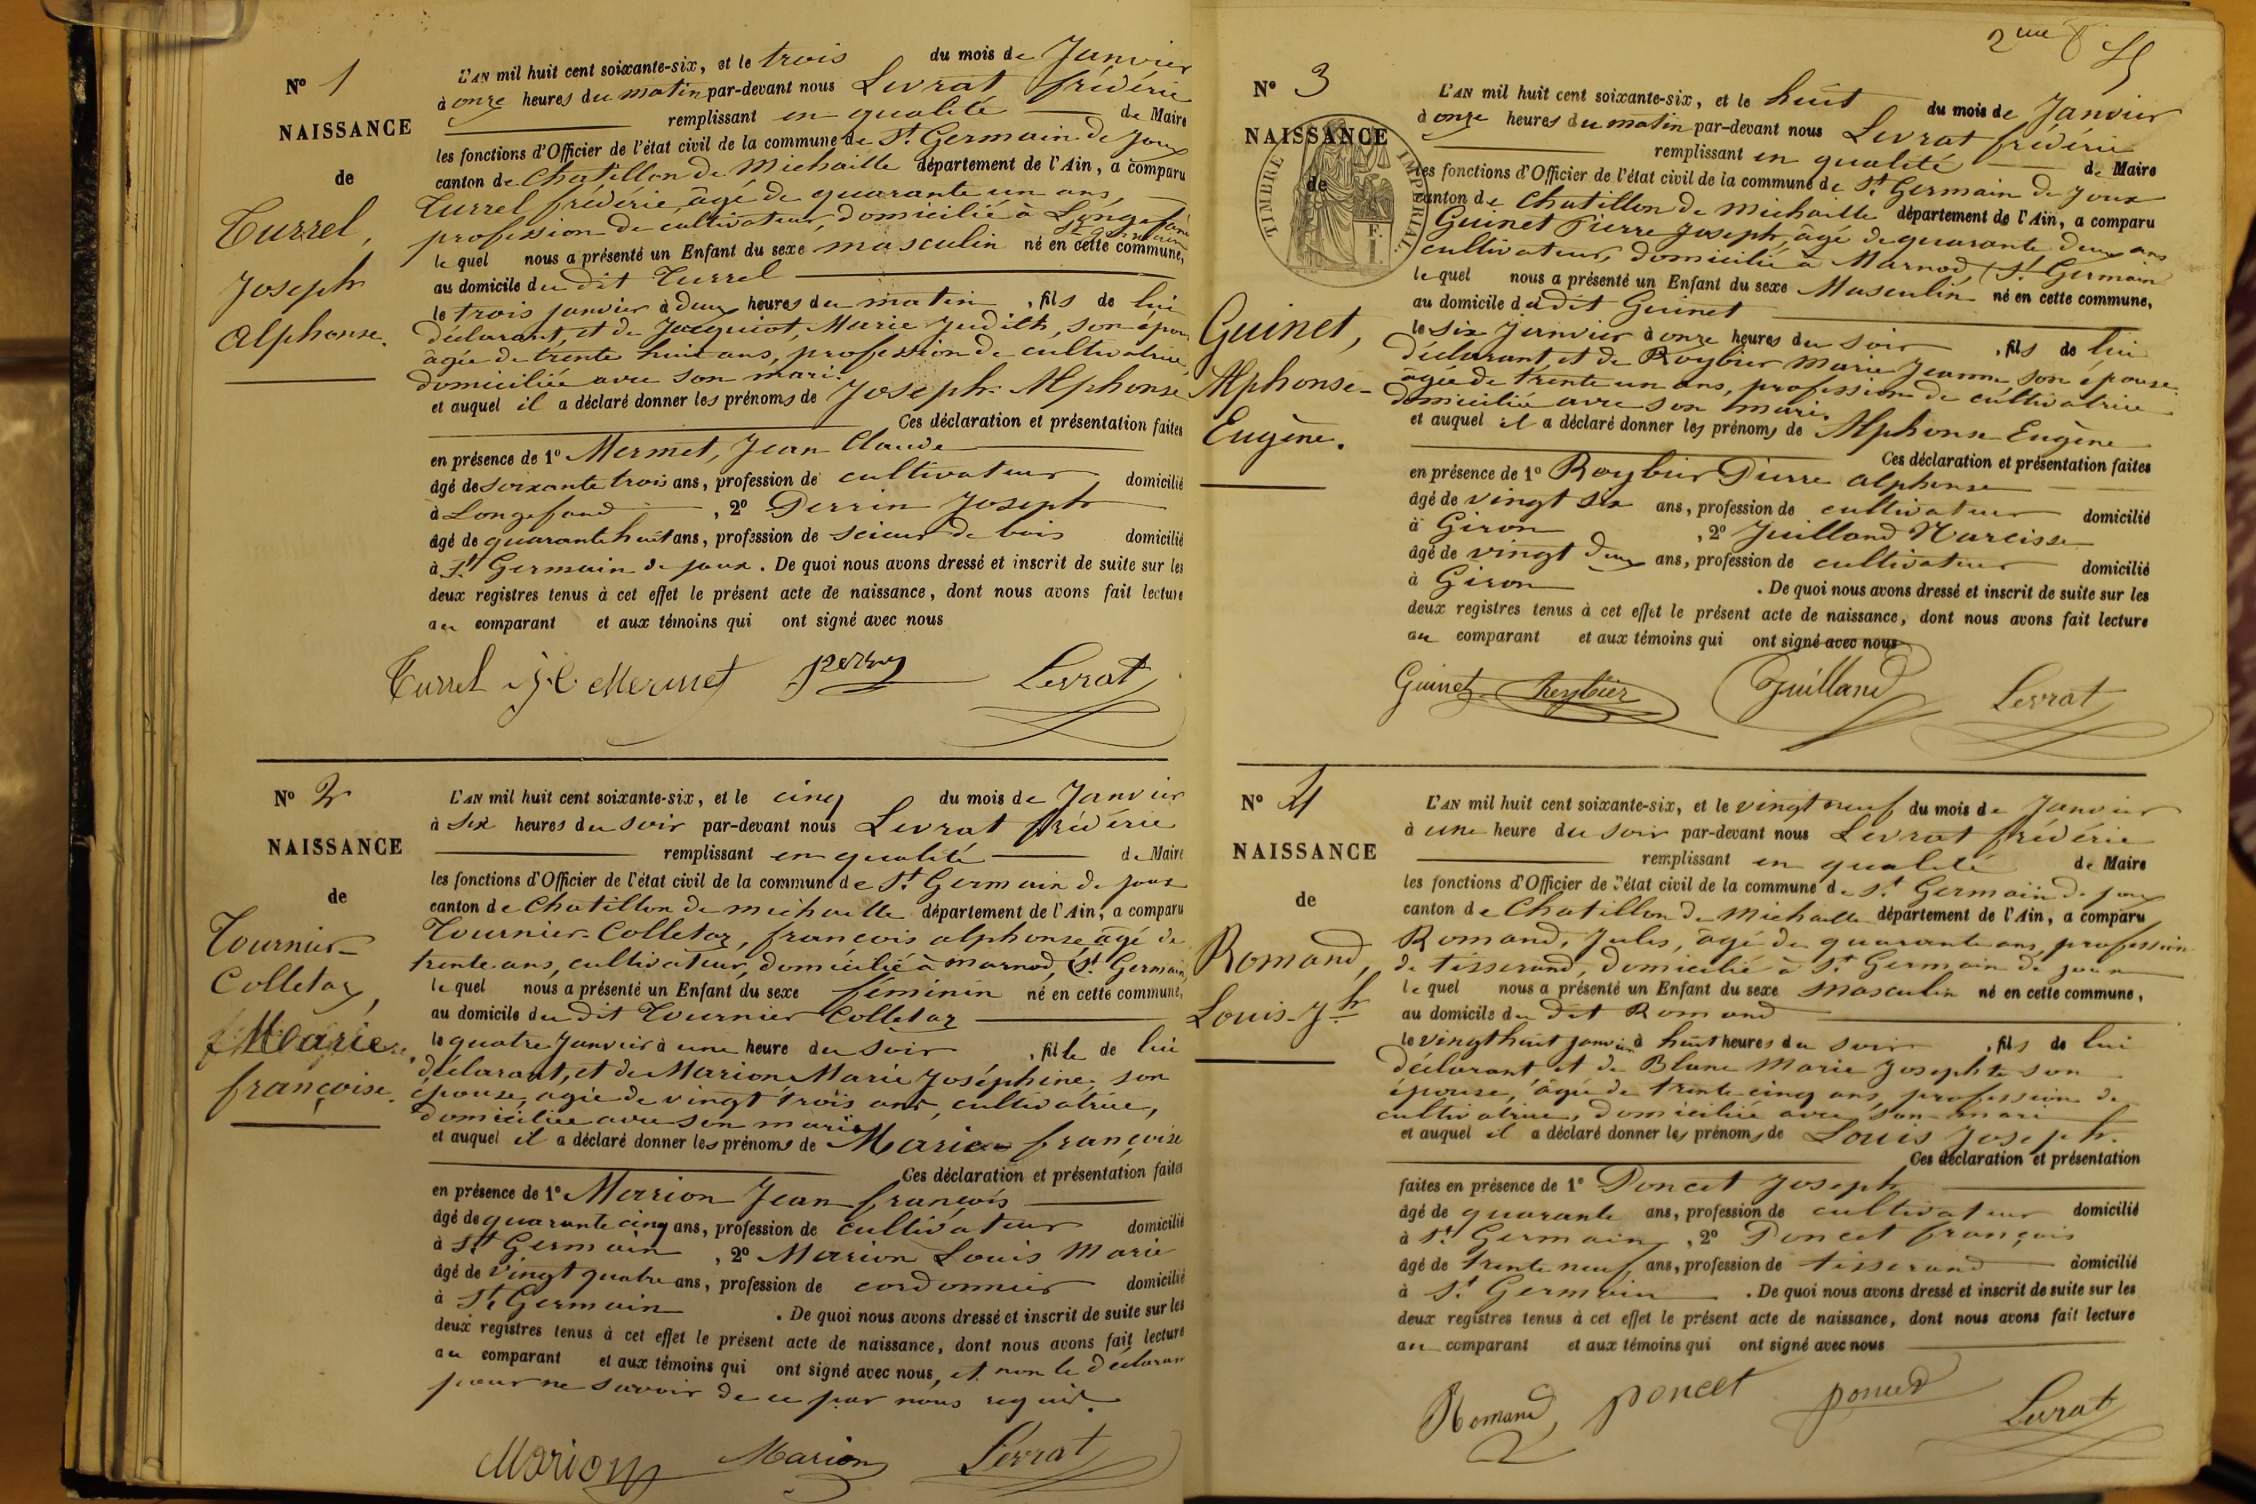 N° 1
NAISSANCE
de
Turrel,
Joseph
Alphonse.
L'AN mil huit cent soixante-six, et le trois du mois de Janvier
à onze heures du matin par-devant nous Levrat frédéric
remplissant en qualité de Maire
les fonctions d'Officier de l'état civil de la commune de St. Germain de Joux
canton de Chatillon de Michaille département de l'Ain, a comparu
Turrel frédéric, âgé de quarante un ans,
profession de cultivateur, domicilié à Longefand
St Germain
le quel nous a présenté un Enfant du sexe masculin né en cette commune,
au domicile du dit Turrel
le trois janvier à deux heures du matin, fils de lui
déclarant, et de Jacquiot, Marie Judith, son épouse
âgée de trente huit ans, profession de cultivatrice,
domiciliée avec son mari.
et auquel il a déclaré donner les prénoms de Joseph Alphonse
Ces déclaration et présentation faites
en présence de 1° Mermet, Jean Claude
âgé de soixante trois ans, profession de cultivateur domicilié
à Longefand, 2° Perrin Joseph
âgé de quarante huit ans, profession de scieur de bois domicilié
à St. Germain de joux. De quoi nous avons dressé et inscrit de suite sur les
deux registres tenus à cet effet le présent acte de naissance, dont nous avons fait lecture
au comparant et aux témoins qui ont signé avec nous
Turrel J. C. Mermet perrin Levrat
N° 2
NAISSANCE
de
Tournier-
Colletaz,
Marie
françoise.
L'AN mil huit cent soixante-six, et le cinq du mois de Janvier
à six heures du soir par-devant nous Levrat frédéric
remplissant en qualité de Maire
les fonctions d'Officier de l'état civil de la commune de St. Germain de joux
canton de Chatillon de michaille département de l'Ain, a comparu
Tournier-Colletaz, françois alphonse, âgé de
trente ans, cultivateur, domicilié à marnod, (St. Germain)
le quel nous a présenté un Enfant du sexe féminin né en cette commune,
au domicile du dit Tournier Colletaz
le quatre Janvier à une heure du soir, fille de lui
déclarant, et de Marion Marie Joséphine, son
épouse, agée de vingt trois ans, cultivatrice,
domiciliée avec son mari
et auquel il a déclaré donner les prénoms de Marie françoise
Ces déclaration et présentation faites
en présence de 1° Marion Jean françois
âgé de quarante cinq ans, profession de cultivateur domicilié
à St Germain, 2° Marion Louis Marie
âgé de vingt quatre ans, profession de cordonnier domicilié
à St Germain. De quoi nous avons dressé et inscrit de suite sur les
deux registres tenus à cet effet le présent acte de naissance, dont nous avons fait lecture
au comparant et aux témoins qui ont signé avec nous, et non le déclarant
pour ne savoir de ce par nous requis.
Marion Marion Levrat
2me
N° 3
NAISSANCE
de
TIMBRE IMPERIAL
Guinet,
Alphonse-
Eugène.
L'AN mil huit cent soixante-six, et le huit du mois de Janvier
à onze heures du matin par-devant nous Levrat frédéric
remplissant en qualité de Maire
les fonctions d'Officier de l'état civil de la commune de St. Germain de Joux
canton de Chatillon de michaille département de l'Ain, a comparu
Guinet Pierre Joseph, âgé de quarante deux ans
cultivateur, domicilié à Marnod, (St Germain
le quel nous a présenté un Enfant du sexe Masculin né en cette commune,
au domicile du dit Guinet
le six Janvier à onze heures du soir, fils de lui
déclarant et de Roybier Marie Jeanne son épouse
âgée de trente un ans, profession de cultivatrice
domiciliée avec son mari.
et auquel il a déclaré donner les prénoms de Alphonse Eugène
Ces déclaration et présentation faites
en présence de 1° Roybier Pierre alphonse
âgé de vingt six ans, profession de cultivateur domicilié
à Giron, 2° Juilland Narcisse
âgé de vingt deux ans, profession de cultivateur domicilié
à Giron. De quoi nous avons dressé et inscrit de suite sur les
deux registres tenus à cet effet le présent acte de naissance, dont nous avons fait lecture
au comparant et aux témoins qui ont signé avec nous
Guinet Reybier Juilland Levrat
N° 4
NAISSANCE
de
Romand,
Louis-Jh
L'AN mil huit cent soixante-six, et le vingt neuf du mois de Janvier
à une heure du soir par-devant nous Levrat frédéric
remplissant en qualité de Maire
les fonctions d'Officier de l'état civil de la commune de St. Germain de joux
canton de Chatillon de Michaille département de l'Ain, a comparu
Romand, Jules, âgé de quarante ans, profession
de tisserand, domicilié à St Germain de joux
le quel nous a présenté un Enfant du sexe masculin né en cette commune,
au domicile du dit Romand
le vingt huit janvier à huit heures du soir, fils de lui
déclarant et de Blanc Marie Josephte son
épouse, âgée de trente cinq ans, profession de
cultivatrice, domiciliée avec son mari
et auquel il a déclaré donner les prénoms de Louis Joseph.
Ces déclaration et présentation
faites en présence de 1° Poncet Joseph
âgé de quarante ans, profession de cultivateur domicilié
à St. Germain, 2° Poncet françois
âgé de trente neuf ans, profession de tisserand domicilié
à St. Germain. De quoi nous avons dressé et inscrit de suite sur les
deux registres tenus à cet effet le présent acte de naissance, dont nous avons fait lecture
au comparant et aux témoins qui ont signé avec nous
Romand poncet poncet Levrat